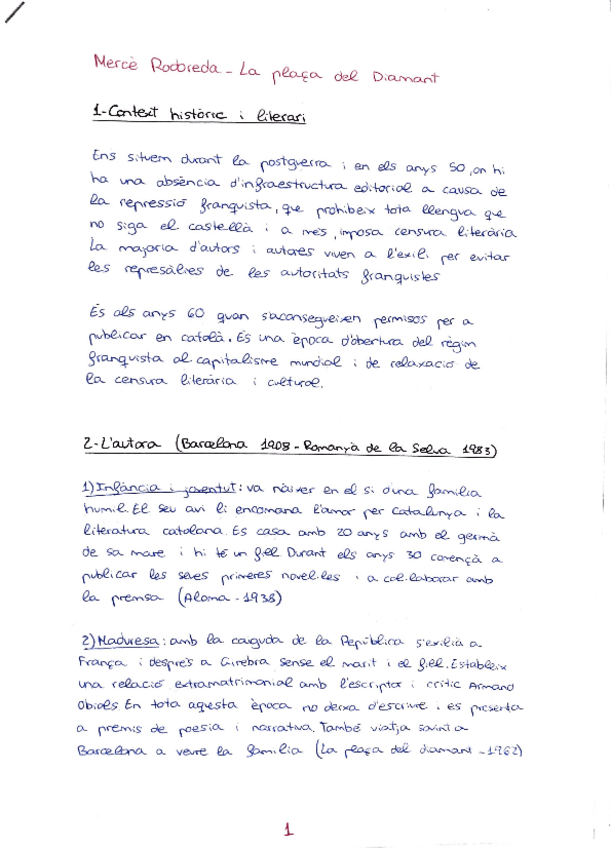 Mercè Rodoreda - La plaça del Diamant
1-Context històric i literari
Ens situem durant la postguerra i en els anys 50, on hi
ha una absència d'infraestructura editorial a causa de
la repressió franquista, que prohibeix tota llengua que
no siga el castellà i a més, imposa censura literària
La majoria d'autors i autores viven a l'exili per evitar
les represàlies de les autoritats franquistes
És als anys 60 quan s'aconsegueixen permisos per a
publicar en català. És una època d'obertura del règim
franquista al capitalisme mundial i de relaxació de
la censura literària i cultural.
2-L'autora (Barcelona 1908 - Romanyà de la Selva 1983)
1) Infància i joventut: va nàixer en el si d'una família
humil. El seu avi li encomana l'amor per Catalunya i la
literatura catalana. Es casa amb 20 anys amb el germà
de sa mare i hi té un fill. Durant els anys 30 comença a
publicar les seves primeres novel·les i a col·laborar amb
la premsa (Aloma - 1938)
2) Maduresa: amb la caiguda de la República s'exilia a
França i després a Ginebra sense el marit i el fill. Estableix
una relació extramatrimonial amb l'escriptor i crític Armand
Obiols. En tota aquesta època no deixa d'escriure i es presenta
a premis de poesia i narrativa. També viatja sovint a
Barcelona a veure la família (La plaça del diamant - 1962)
1